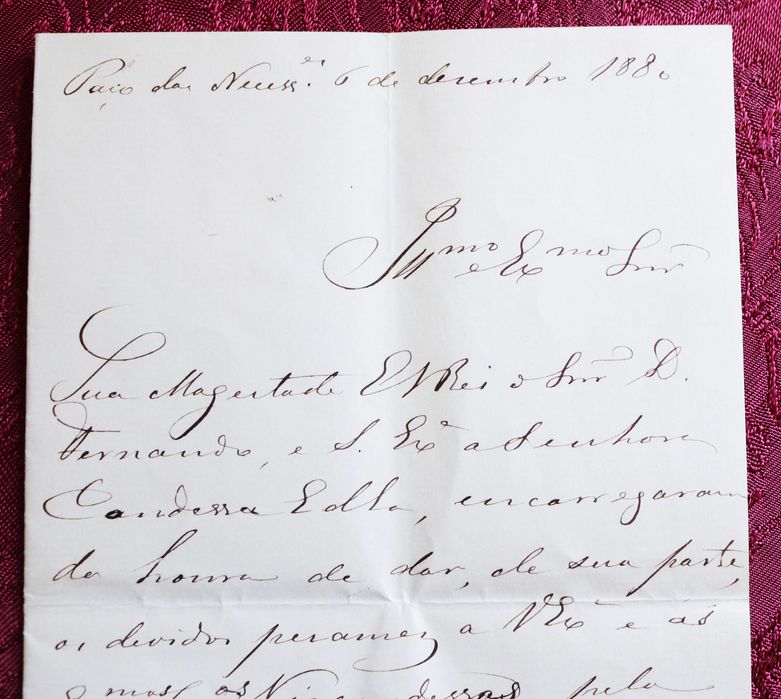 Paço das Necess.es 6 de desembro 1880
Illmo e Exmo Snr
Sua Magestade El Rei o Snr D.
Fernando, e S. Exa a Senhora
Condessa Edla, encarregaram
da honra de dar, de sua parte,
os devidos peramez a V Exa e ás
pela